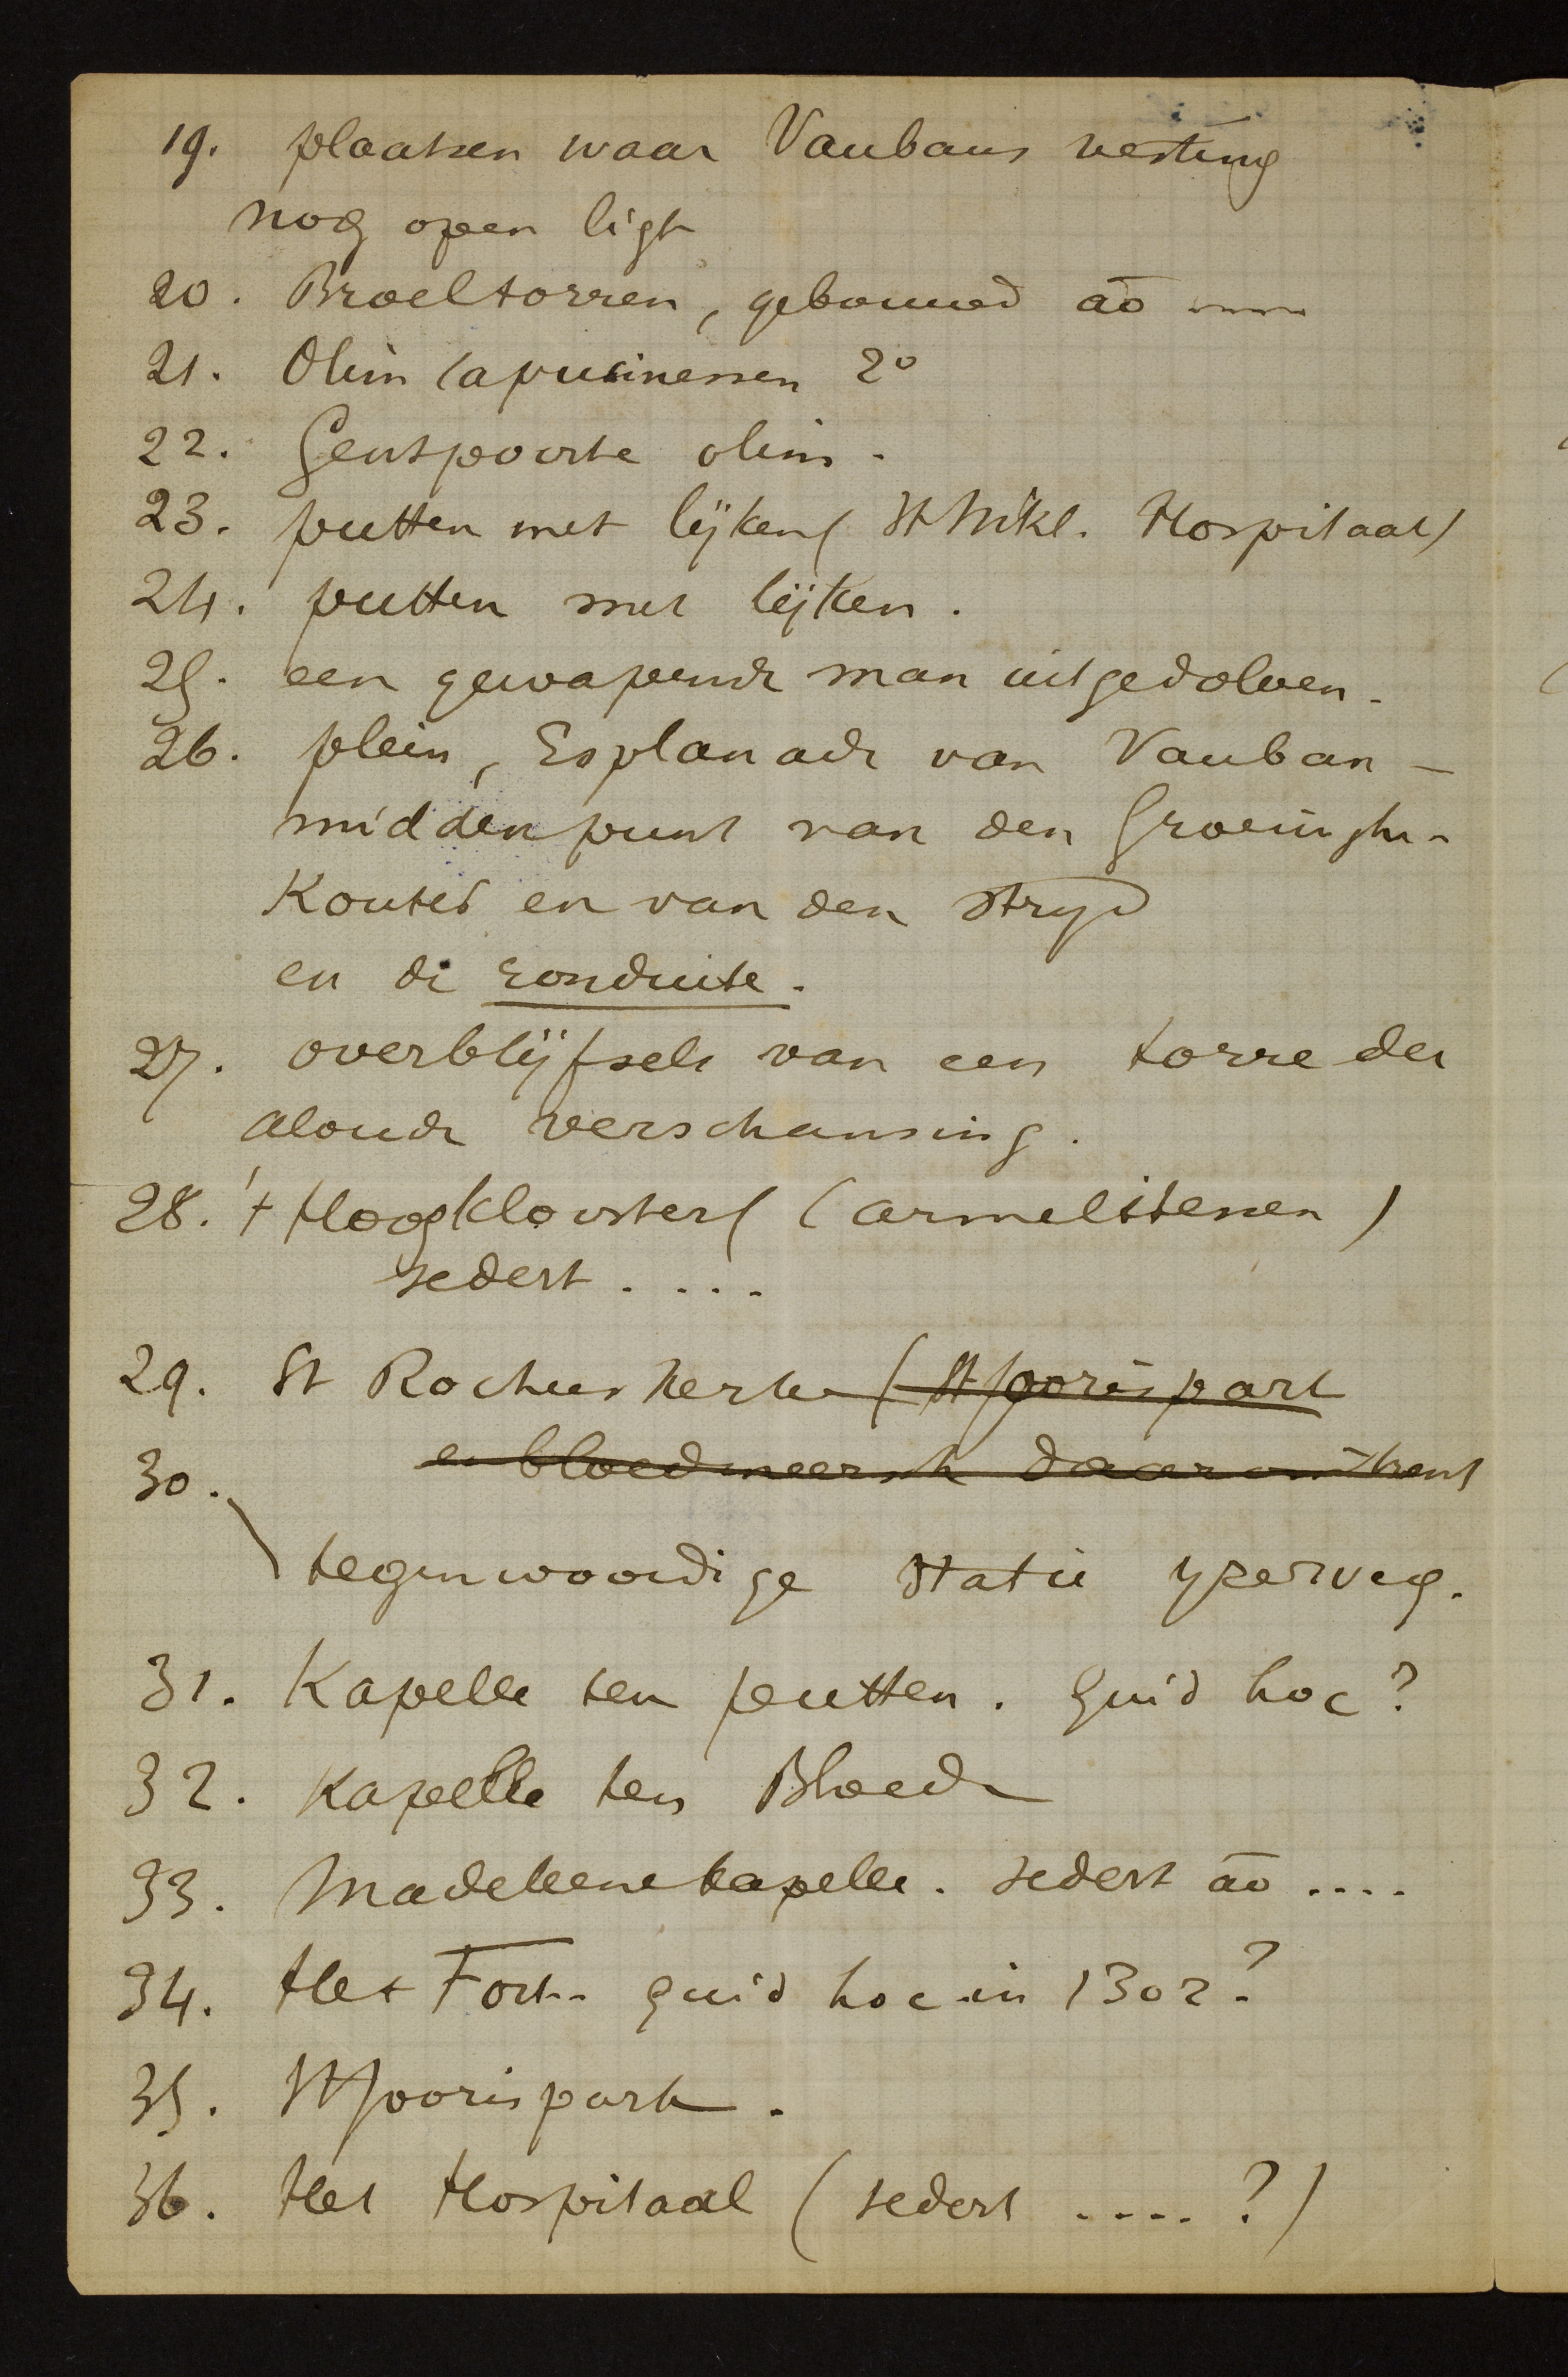 19. plaatsen waar Vaubans vesting
nog open ligt
20. Broeltorren, gebouwd ao
21. Olim Capucinessen 2o
22. Gentpoorte olim.
23. putten met lijken (St Nikl. Hospitaal)
24. putten met lijken.
25. een gewapende man uitgedolven.
26. plein, Esplanade van Vauban –
middenpunt van den Groeninghe-
Kouter en van den stryd
en de ronduite.
27. overblijfsels van een torre der
aloude verschansing.
28. 't Hoogklooster (Carmelitessen)
sedert ....
29. St Rochuskerke (St Joorispark
en bloedmeersch daaromtrent
30.
tegenwoordige statie yzerweg.
31. Kapelle ten putten. Quid hoc?
32. Kapelle ten Bloede
33. Madeleenekapelle. sedert ao ....
34. Het Fort. Quid hoc in 1302?
35. St Joorispark.
36. Het Hospitaal (sedert ....?)